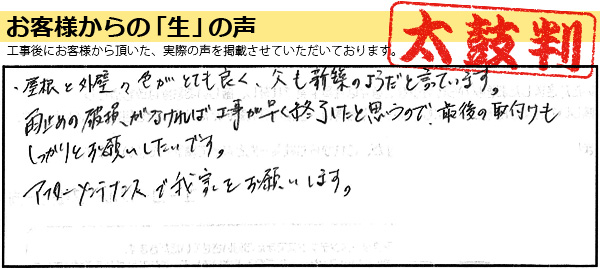 お客様からの「生」の声
太鼓判
工事後にお客様から頂いた、実際の声を掲載させていただいております。
・屋根と外壁の色がとても良く、父も新築のようだと言っています。
雨止めの破損がなければ工事が早く終了したと思うので、最後の取付けも
しっかりとお願いしたいです。
アフターメンテナンスで我家をお願いします。